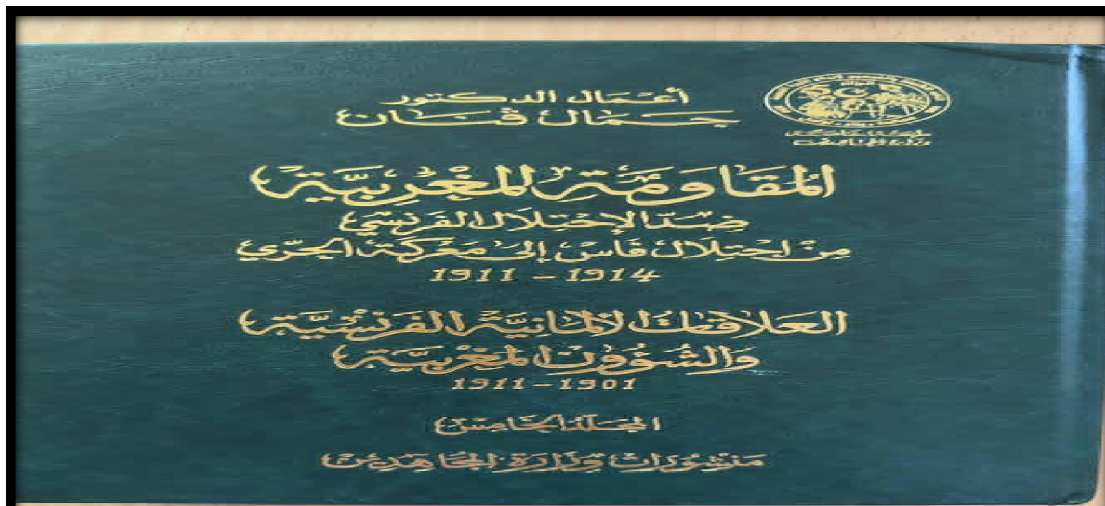 أعمال الدكتور
جمال قنان
المقاومة المغربية
ضد الإحتلال الفرنسي
من إحتلال فاس إلى معركة الهري
1911 - 1914
العلاقات الألمانية الفرنسية
والشؤون المغربية
1911-1901
المجلد الخامس
منشورات وزارة المجاهدين